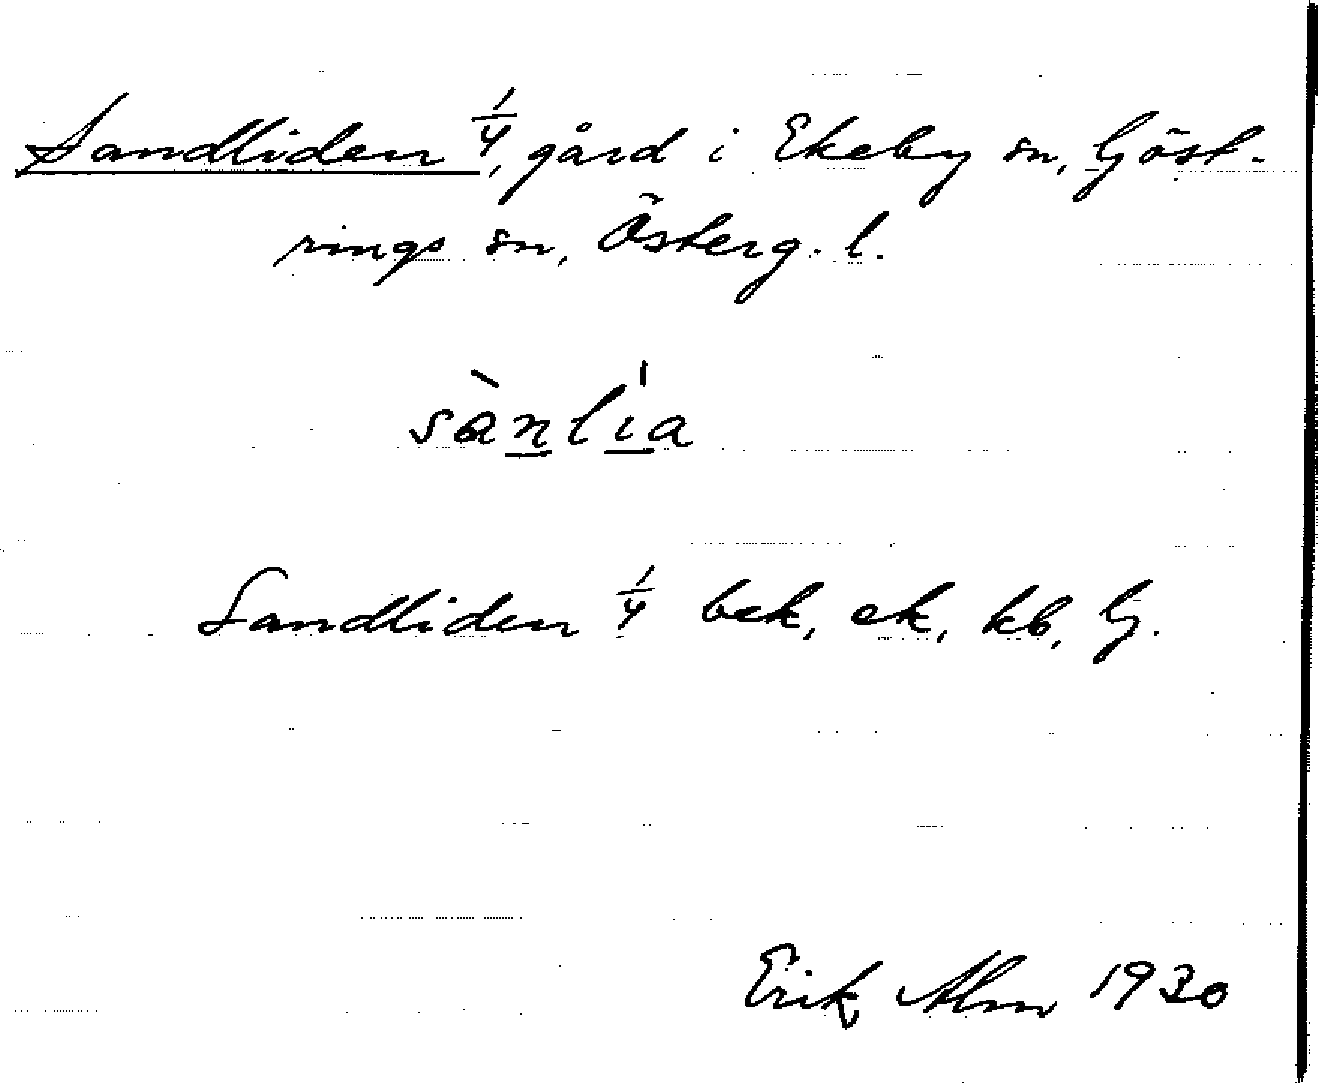 Sandliden 1/4, gård i Ekeby sn, Göst-
rings sn, Österg. l.
sànlia
Sandliden 1/4 bek, ek, kb, G.
Erik Alm 1930